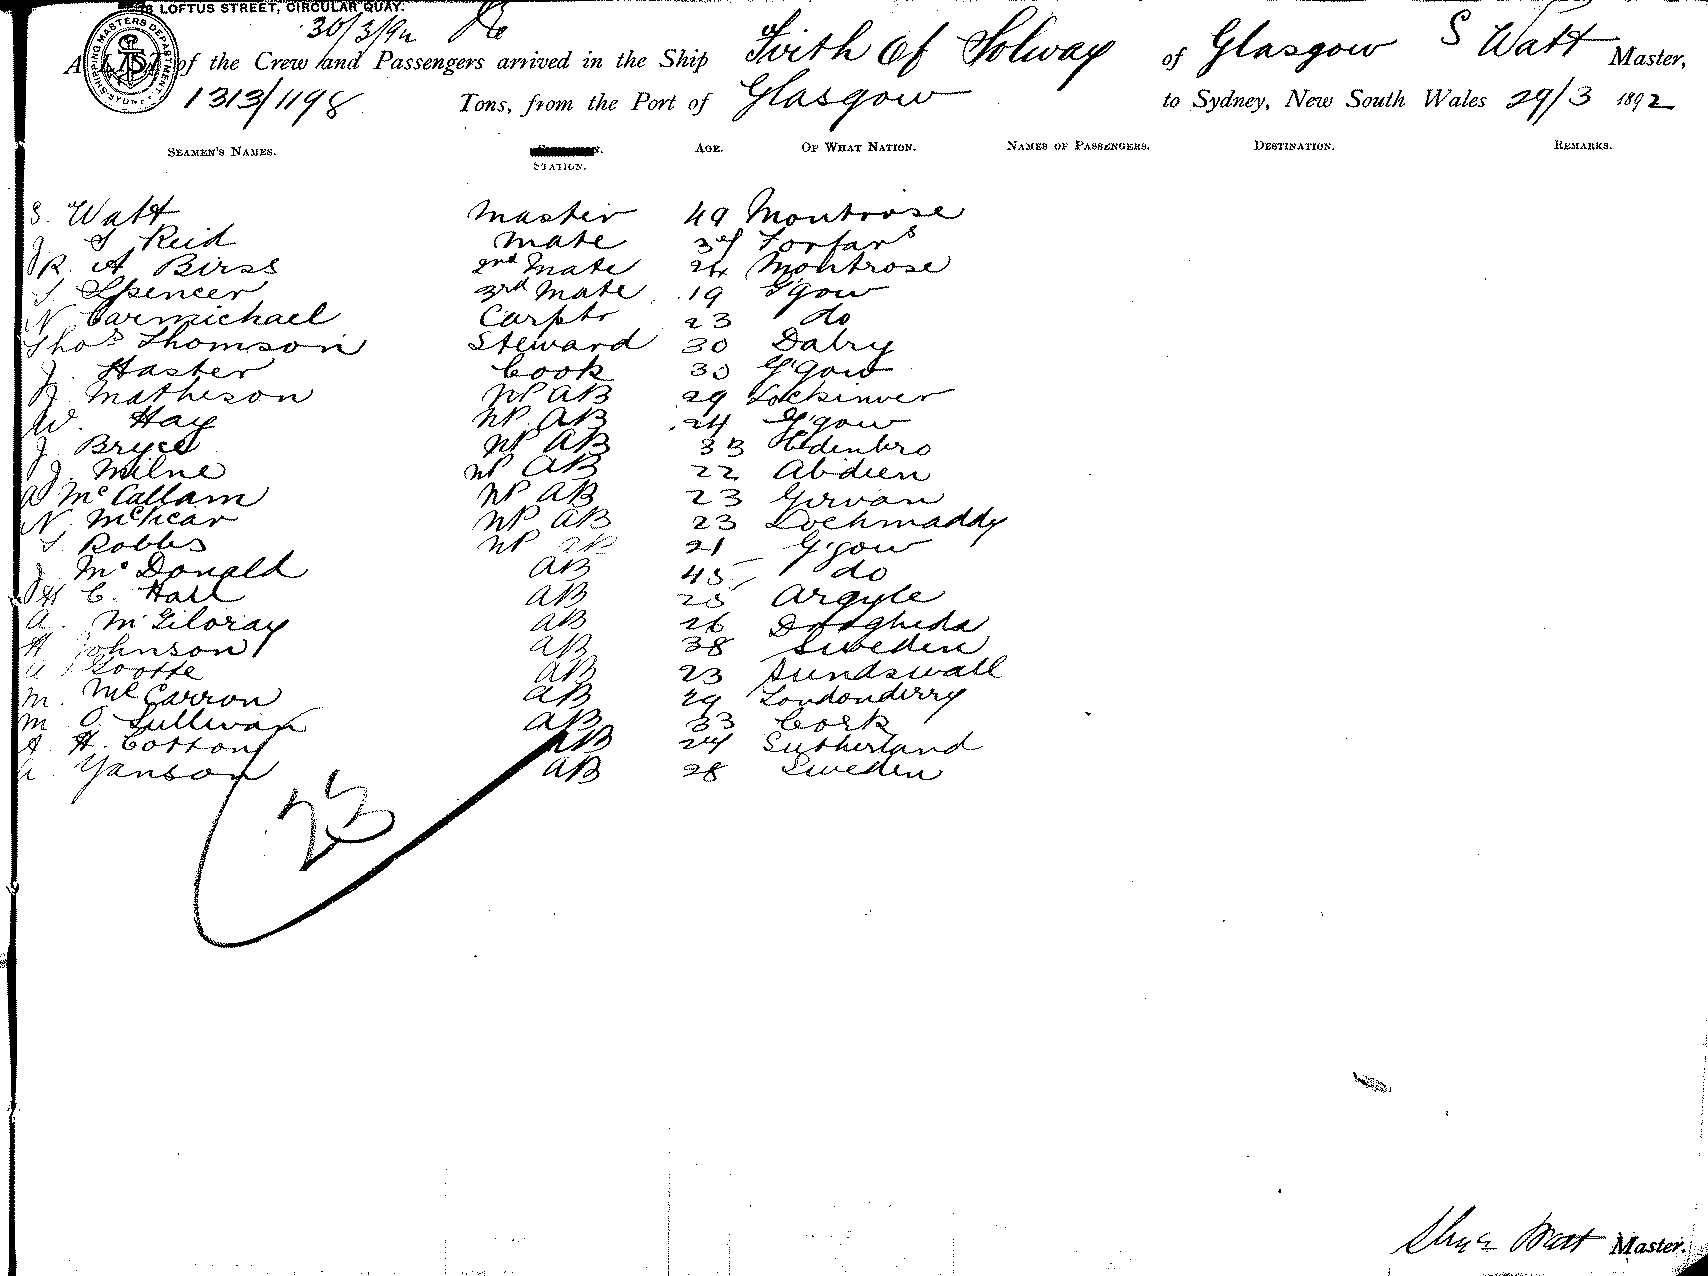 LOFTUS STREET, CIRCULAR QUAY.
30/3/92
SHIPPING MASTERS DEPARTMENT
A LIST of the Crew and Passengers arrived in the Ship Firth Of Solway of Glasgow S Watt Master,
1313/1198 Tons, from the Port of Glasgow to Sydney, New South Wales 29/3 1892
SEAMEN'S NAMES. STATION. AGE. OF WHAT NATION. NAMES OF PASSENGERS. DESTINATION. REMARKS.
S. Watt Master 49 Montrose
J S Reid Mate Forfars
R. A Birss 2nd Mate 24 Montrose
S Spencer 3rd Mate 19 G'gow
N Carmichael Carptr 23 do
Thos Thomson Steward 30 Dalry
J. Haster Cook 30 G'gow
Matheson NP AB 29 Lockinver
W. Hay NP AB 24 G'gow
J. Bryce NP AB 33 Edenbro
J. Milne NP AB 22 Abdeen
D McCallam NP AB 23 Girvan
N. McVicar NP AB 23 Lochmaddy
Robbs NP AB 21 G'gow
J McDonald AB 45 do
C. Hall AB 25 Argyle
A. McGiloray AB 26 Drogheda
H Johnson AB 38 Sweden
AB 23 Sundswall
M. McCarron AB 29 Londonderry
M O. Sullivan AB 33 Cork
A. H. Cotton AB 24 Sutherland
A. Yanson AB 28 Sweden
23
Watt Master.